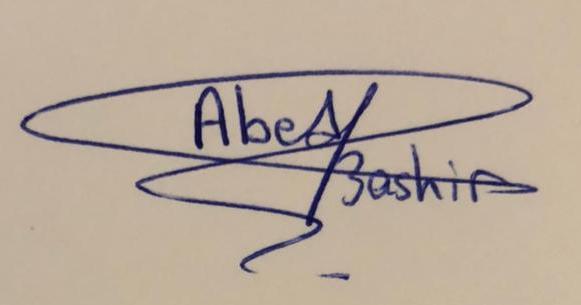 Abed
Bashir